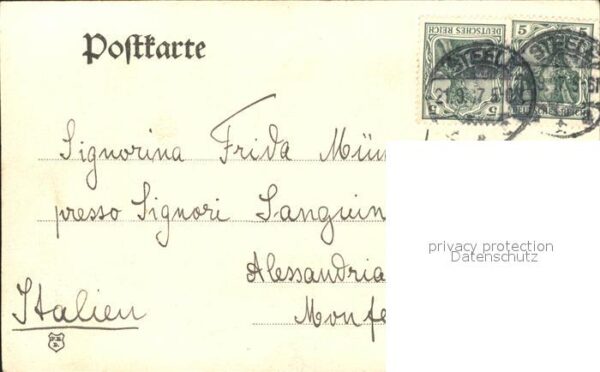 Postkarte
DEUTSCHES REICH
5 5
5 5
STEELE
STEELE
Signorina Frida Mün
presso Signori Sanguin
Alessandria
Italien
Monfe
privacy protection
Datenschutz